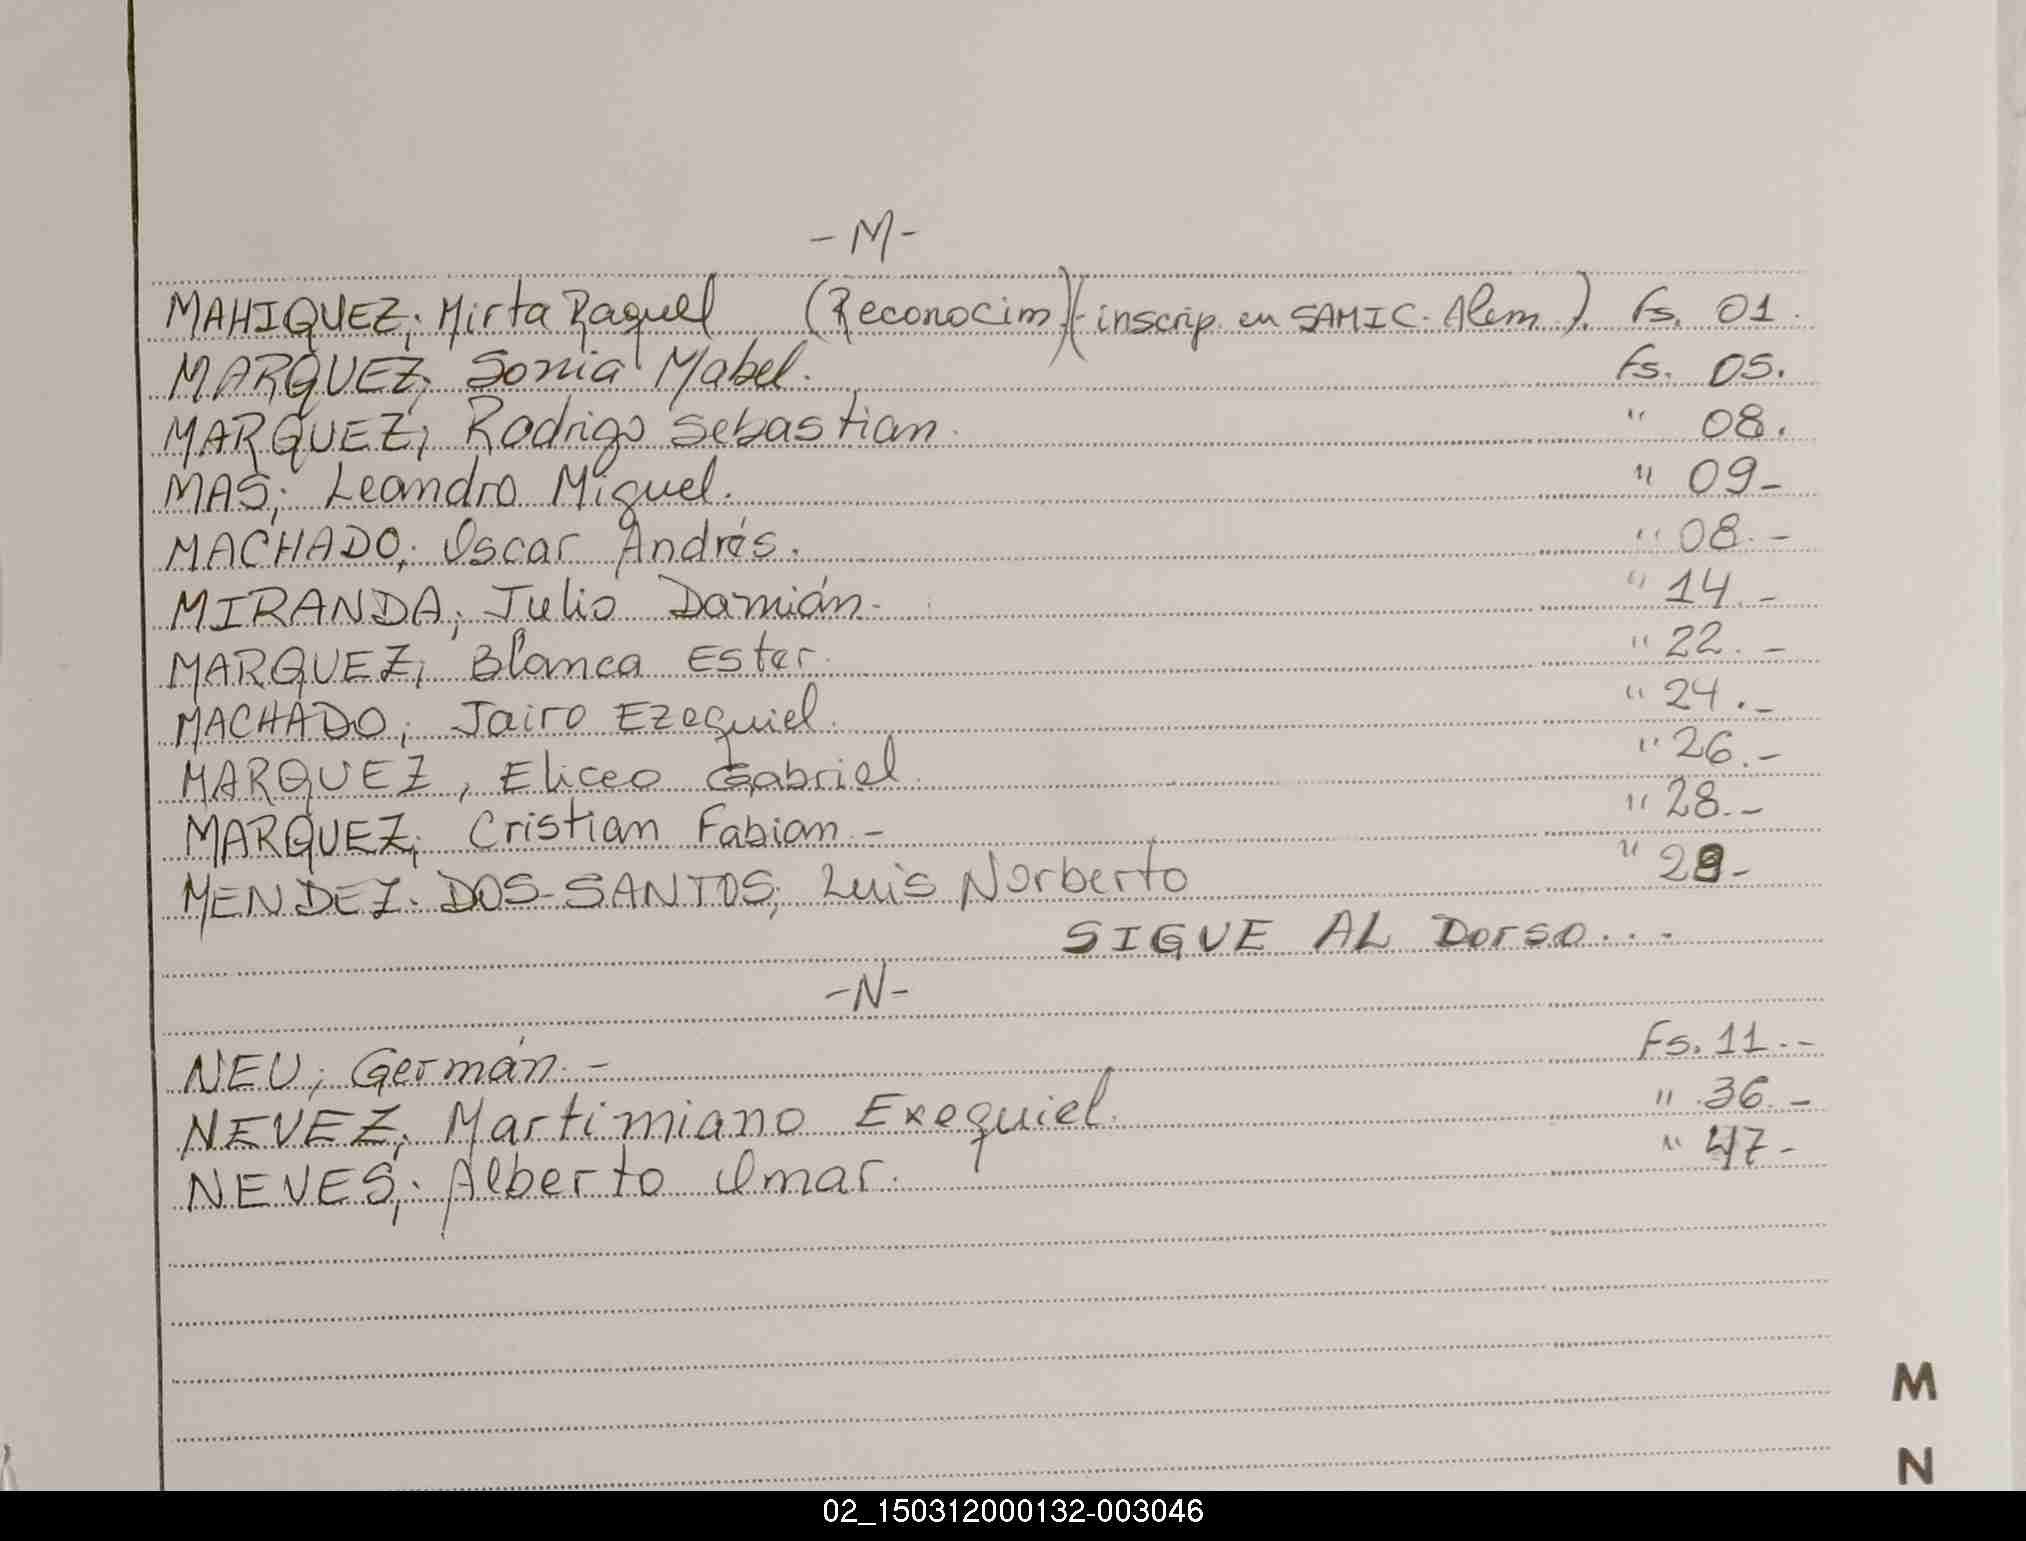 -M-
MAHIQUEZ; Mirta Raquel (Reconocim)(-inscrip. en SAMIC. Alem). Fs. 01.
MARQUEZ; Sonia Mabel. Fs. 05.
MARQUEZ; Rodrigo Sebastian. " 08.
MAS; Leandro Miguel. " 09-
MACHADO; Oscar Andrés. " 08.-
MIRANDA; Julio Damián. " 14.-
MARQUEZ; Blanca Ester. " 22.-
MACHADO; Jairo Ezequiel. " 24.-
MARQUEZ, Eliceo Gabriel. " 26.-
MARQUEZ; Cristian Fabian.- " 28.-
MENDEZ. DOS-SANTOS; Luis Norberto " 29-
SIGUE AL Dorso...
-N-
NEU; Germán.- Fs. 11.-
NEVEZ; Martimiano Exequiel. " 36.-
NEVES; Alberto Omar. " 47-
M
N
02_150312000132-003046